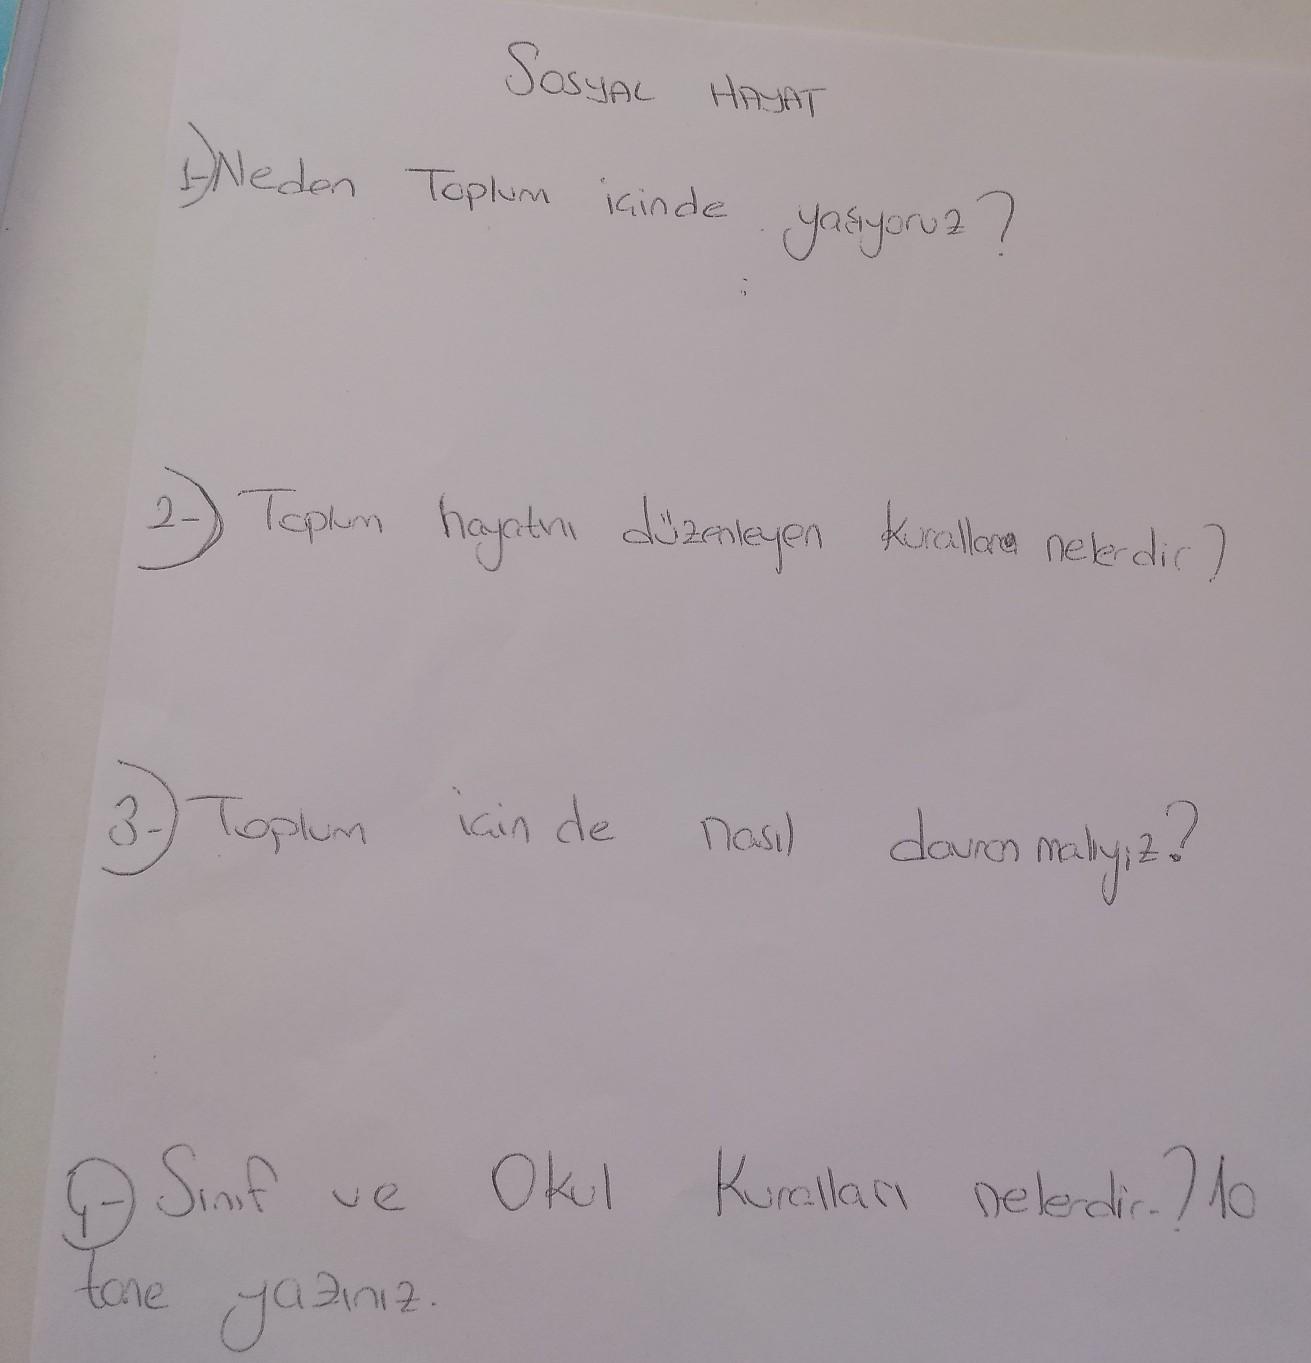 SOSYAL HAYAT
1-) Neden Toplum içinde yaşıyoruz?
2-) Toplum hayatını düzenleyen kurallar nelerdir?
3-) Toplum içinde nasıl davranmalıyız?
4-) Sınıf ve Okul Kuralları nelerdir.? 10
tane yazınız.